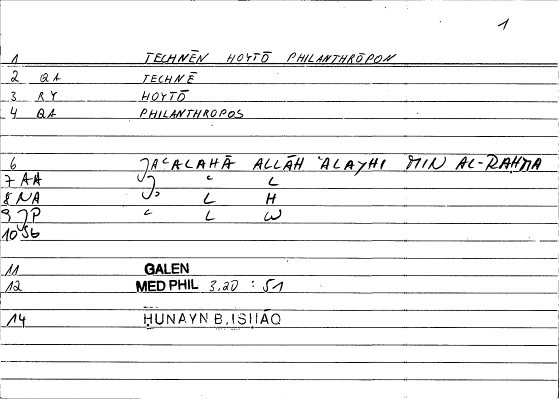 1
1 TECHNĒN HOYTŌ PHILANTHRŌPON
2 QA TECHNĒ
3 RY HOYTŌ
4 QA PHILANTHROPOS
6 ǦAʿALAHĀ ALLĀH ʿALAYHI MIN AL-RAḤMA
7 AA Ǧ ʿ L
8 NA L H
9 ǦP ʿ L W
10
11 GALEN
12 MED PHIL 3,20 : 51
14 ḤUNAYN B. ISḤĀQ